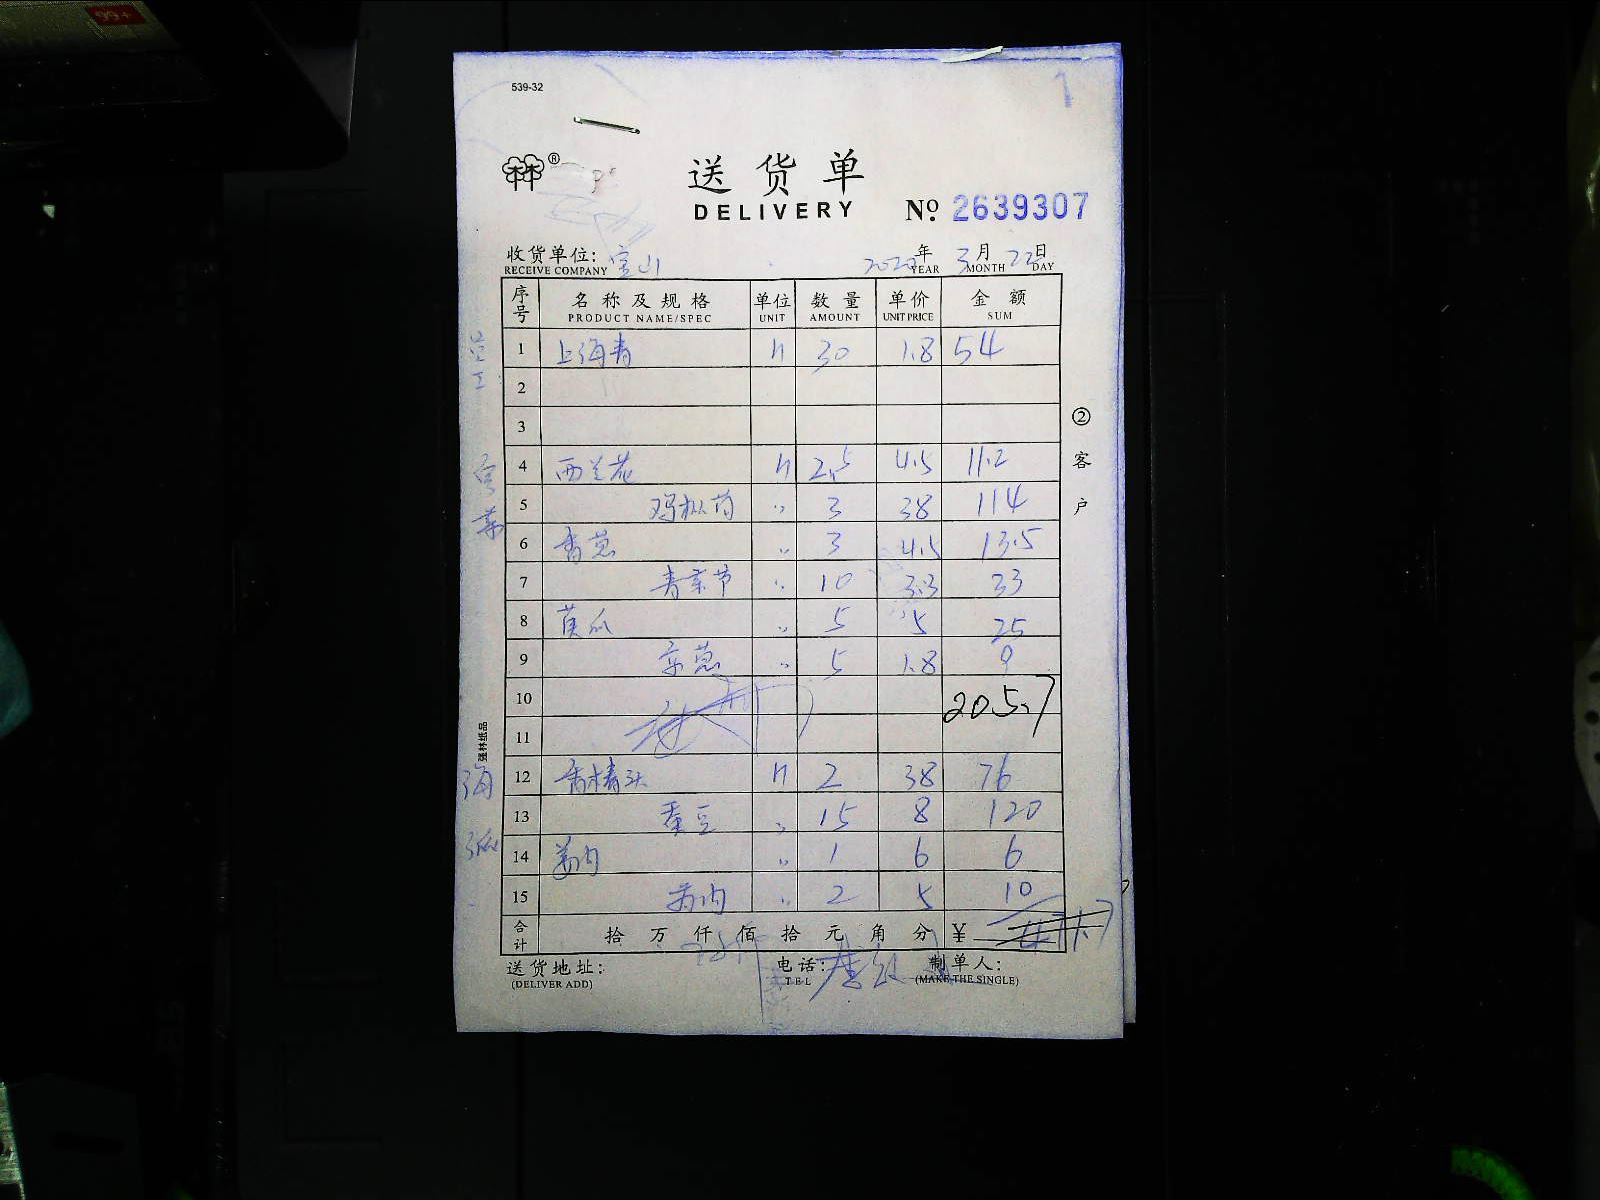 99+
539-32
送货单
DELIVERY
№ 2639307
收货单位: 宝山 2020年 3月 22日
RECEIVE COMPANY YEAR MONTH DAY
序号 名称及规格 单位 数量 单价 金额
PRODUCT NAME/SPEC UNIT AMOUNT UNIT PRICE SUM
1 上海青 斤 30 1.8 54
2
3
4 西兰花 斤 2.5 4.5 11.2
5 鸡枞菌 〃 3 38 114
6 香葱 〃 3 4.5 13.5
7 青菜节 〃 10 3.3 33
8 黄瓜 〃 5 5 25
9 京葱 〃 5 1.8 9
10 205.7
11
12 香椿头 斤 2 38 76
13 蚕豆 〃 15 8 120
14 姜肉 〃 1 6 6
15 〃 2 5 10
合计 拾 万 仟 佰 拾 元 角 分 ¥
送货地址: 电话: 制单人:
(DELIVER ADD) TEL (MAKE THE SINGLE)
②客户
强林纸品